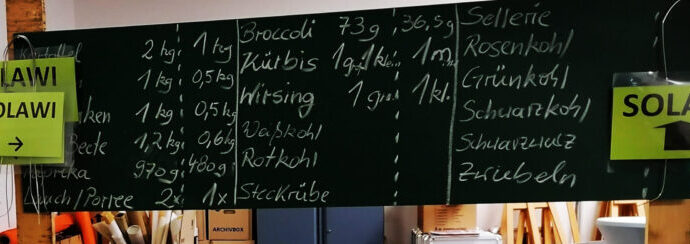 2 kg 1 kg
1 kg 0,5 kg
1 kg 0,5 kg
1,2 kg 0,6 kg
970g 480g
Lauch/Porree 2x 1x
Broccoli 73g 36,5g
Kürbis
Wirsing 1 gr. 1 kl.
Weißkohl
Rotkohl
Steckrübe
Sellerie
Rosenkohl
Grünkohl
Schwarzkohl
Schwarzwurz
Zwiebeln
LAWI
OLAWI
→
SOLA
ARCHIVBOX